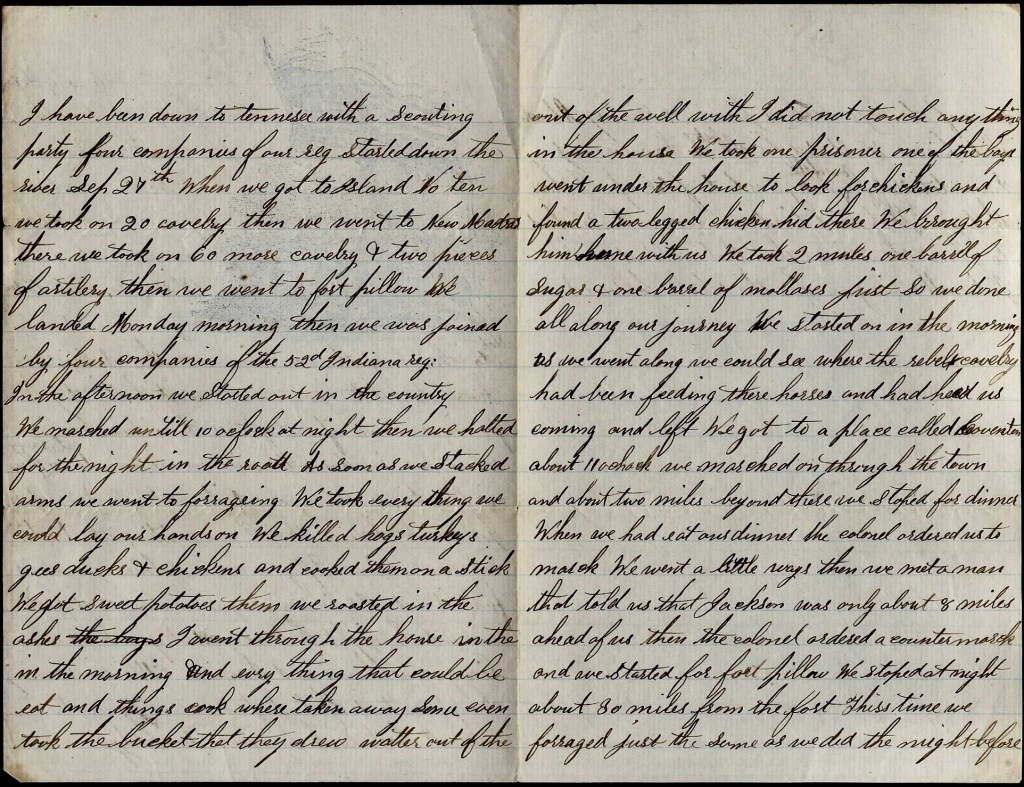 I have been down to tennesee with a scouting
party four companies of our reg started down the
river Sep 27th When we got to Island No ten
we took on 20 cavelry then we went to New Madrid
there we took on 60 more cavelry & two pieces
of artilery then we went to fort pillow We
landed Monday morning then we was joined
by four companies of the 52d Indiana reg:
In the afternoon we started out in the country
We marched untill 10 oclock at night then we halted
for the night in the road As soon as we stacked
arms we went to forrageing We took every thing we
could lay our hands on We killed hogs turkeys
gees ducks & chickens and cooked them on a stick
We got sweet potatoes them we roasted in the
ashes the boys I went through the house in the
in the morning and evry thing that could be
eat and things cook where taken away some even
took the bucket that they drew watter out of the
out of the well with I did not touch any thing
in the house We took one prisoner one of the boys
went under the house to look for chickens and
found a two legged chicken hid there We brought
him home with us We took 2 mules one barrell of
sugar & one barrel of mollases just so we done
all along our journey We started on in the morning
as we went along we could see where the rebels cavelry
had been feeding there horses and had heard us
coming and left We got to a place called
about 11 oclock we marched on through the town
and about two miles beyond there we stoped for dinner
When we had eat our dinner the colonel ordered us to
march We went a little ways then we met a man
that told us that Jackson was only about 8 miles
ahead of us then the colonel ordered a counter march
and we started for fort pillow We stoped at night
about 30 miles from the fort This time we
forraged just the same as we did the night before